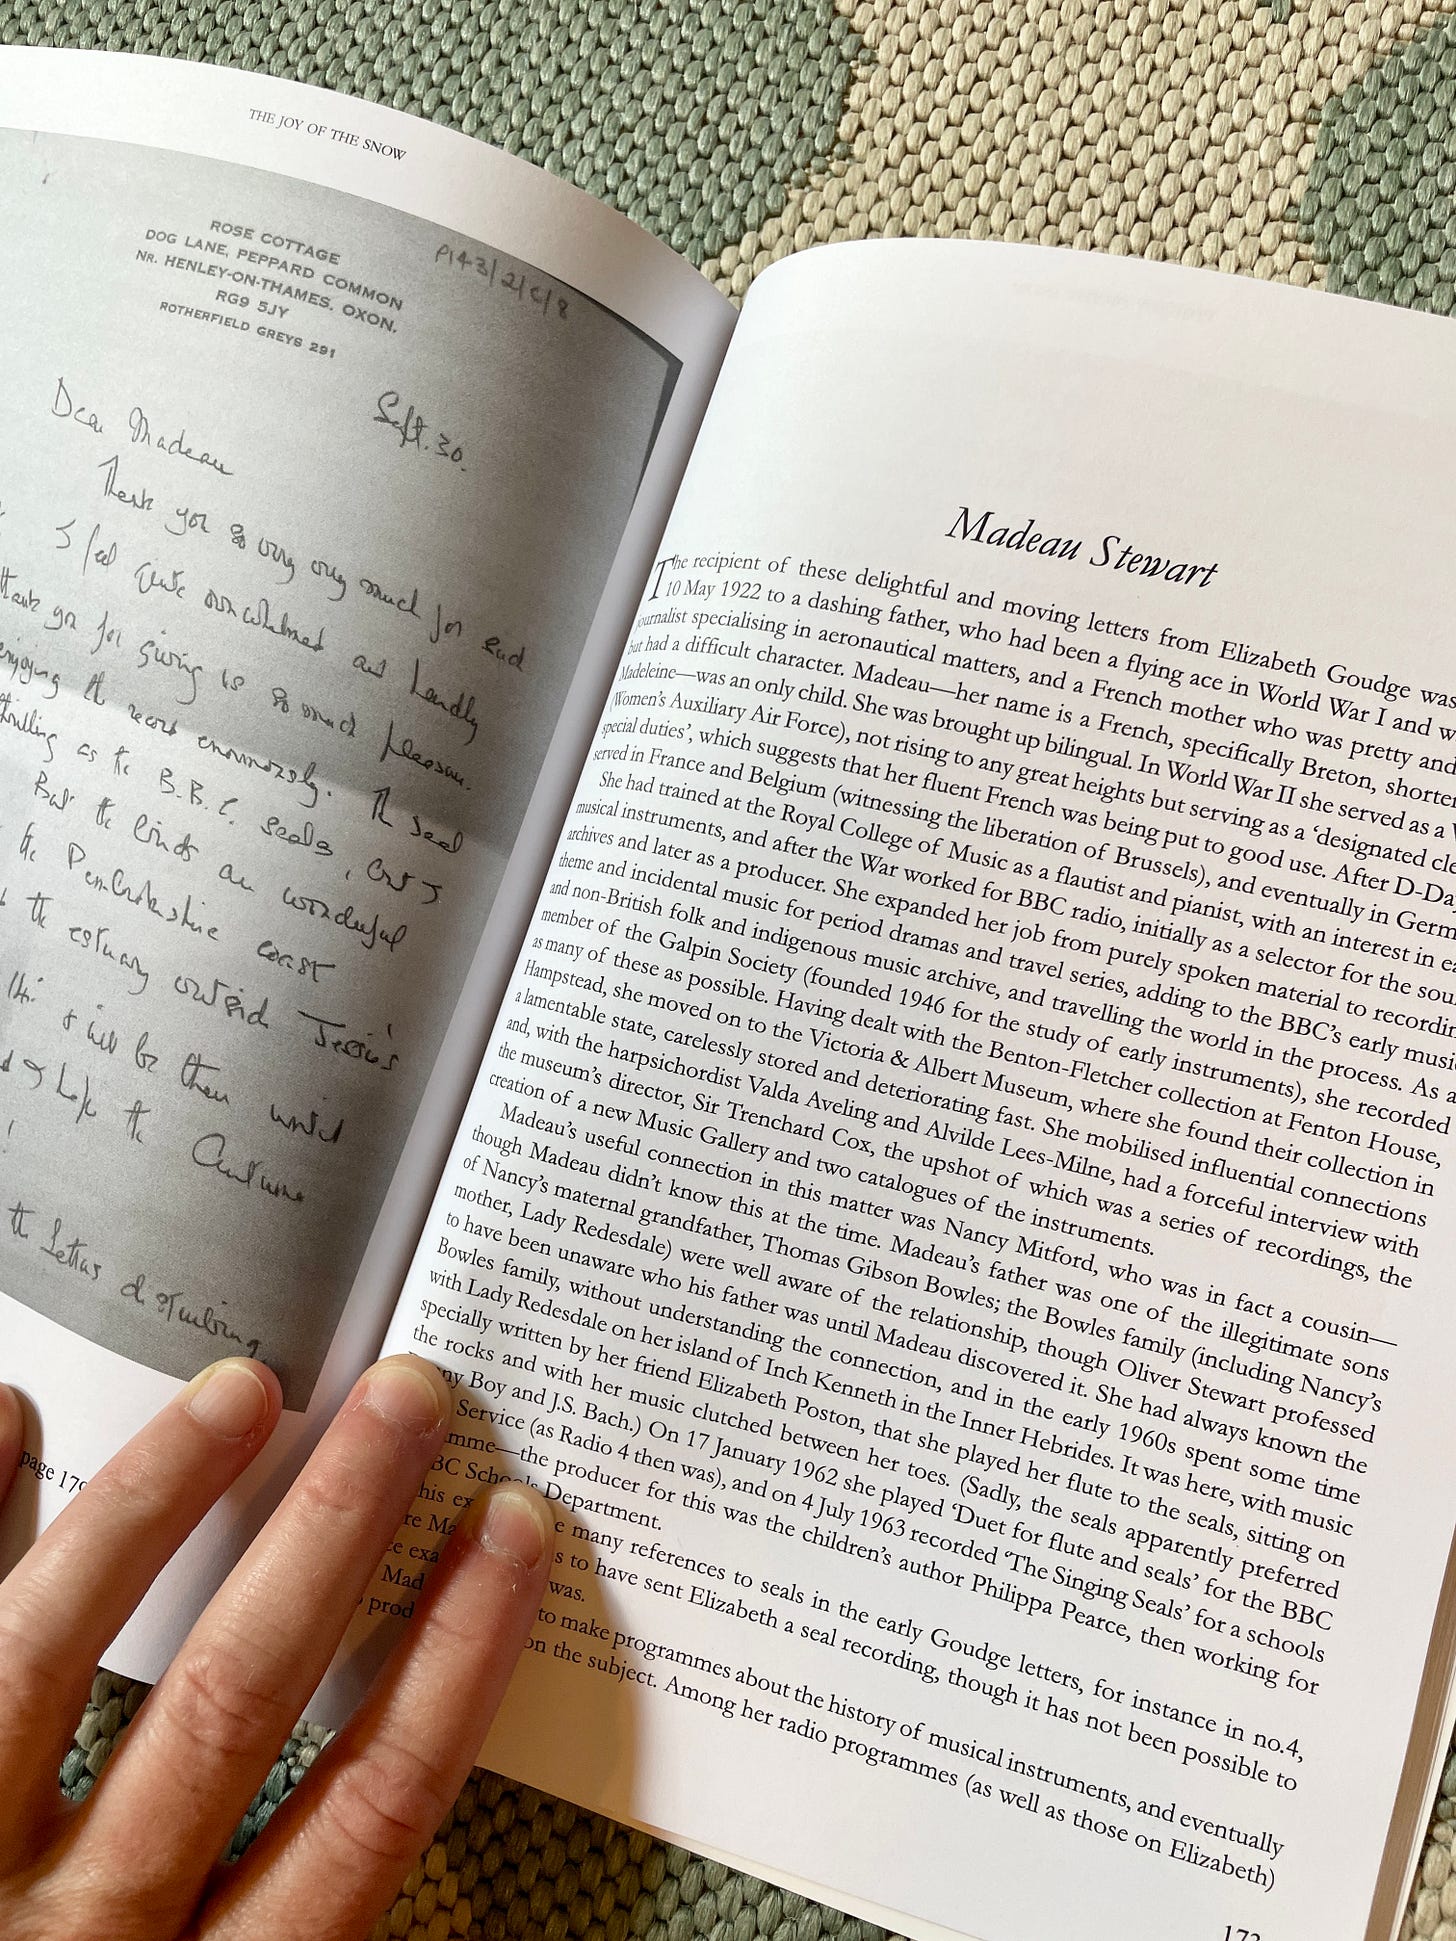 THE JOY OF THE SNOW
ROSE COTTAGE
DOG LANE, PEPPARD COMMON
NR. HENLEY-ON-THAMES, OXON.
RG9 5JY
ROTHERFIELD GREYS 291
P143/2/C/8
Sept. 30.
Dear Madeau
Thank you so very very much for such
I feel quite overwhelmed and hardly
thank you for giving us so much pleasure.
enjoying the record enormously. The seal
thrilling as the B.B.C. seals, cos
But the birds are wonderful
the Pembrokeshire coast
the estuary outside Jessie's
this & will be there until
hope the Autumn
!
the letters disturbing
page 170
Madeau Stewart
The recipient of these delightful and moving letters from Elizabeth Goudge was
10 May 1922 to a dashing father, who had been a flying ace in World War I and w
journalist specialising in aeronautical matters, and a French mother who was pretty and
but had a difficult character. Madeau—her name is a French, specifically Breton, shorte
Madeleine—was an only child. She was brought up bilingual. In World War II she served as a W
(Women's Auxiliary Air Force), not rising to any great heights but serving as a 'designated cle
special duties', which suggests that her fluent French was being put to good use. After D-Da
served in France and Belgium (witnessing the liberation of Brussels), and eventually in Germ
She had trained at the Royal College of Music as a flautist and pianist, with an interest in ea
musical instruments, and after the War worked for BBC radio, initially as a selector for the sou
archives and later as a producer. She expanded her job from purely spoken material to recordin
theme and incidental music for period dramas and travel series, adding to the BBC's early musi
and non-British folk and indigenous music archive, and travelling the world in the process. As a
member of the Galpin Society (founded 1946 for the study of early instruments), she recorded
as many of these as possible. Having dealt with the Benton-Fletcher collection at Fenton House,
Hampstead, she moved on to the Victoria & Albert Museum, where she found their collection in
a lamentable state, carelessly stored and deteriorating fast. She mobilised influential connections
and, with the harpsichordist Valda Aveling and Alvilde Lees-Milne, had a forceful interview with
the museum's director, Sir Trenchard Cox, the upshot of which was a series of recordings, the
creation of a new Music Gallery and two catalogues of the instruments.
Madeau's useful connection in this matter was Nancy Mitford, who was in fact a cousin—
though Madeau didn't know this at the time. Madeau's father was one of the illegitimate sons
of Nancy's maternal grandfather, Thomas Gibson Bowles; the Bowles family (including Nancy's
mother, Lady Redesdale) were well aware of the relationship, though Oliver Stewart professed
to have been unaware who his father was until Madeau discovered it. She had always known the
Bowles family, without understanding the connection, and in the early 1960s spent some time
with Lady Redesdale on her island of Inch Kenneth in the Inner Hebrides. It was here, with music
specially written by her friend Elizabeth Poston, that she played her flute to the seals, sitting on
the rocks and with her music clutched between her toes. (Sadly, the seals apparently preferred
ny Boy and J.S. Bach.) On 17 January 1962 she played 'Duet for flute and seals' for the BBC
Service (as Radio 4 then was), and on 4 July 1963 recorded 'The Singing Seals' for a schools
mme—the producer for this was the children's author Philippa Pearce, then working for
BC Schools Department.
his ex e many references to seals in the early Goudge letters, for instance in no.4,
re Ma s to have sent Elizabeth a seal recording, though it has not been possible to
ce exa was.
Mad to make programmes about the history of musical instruments, and eventually
prod on the subject. Among her radio programmes (as well as those on Elizabeth)
173